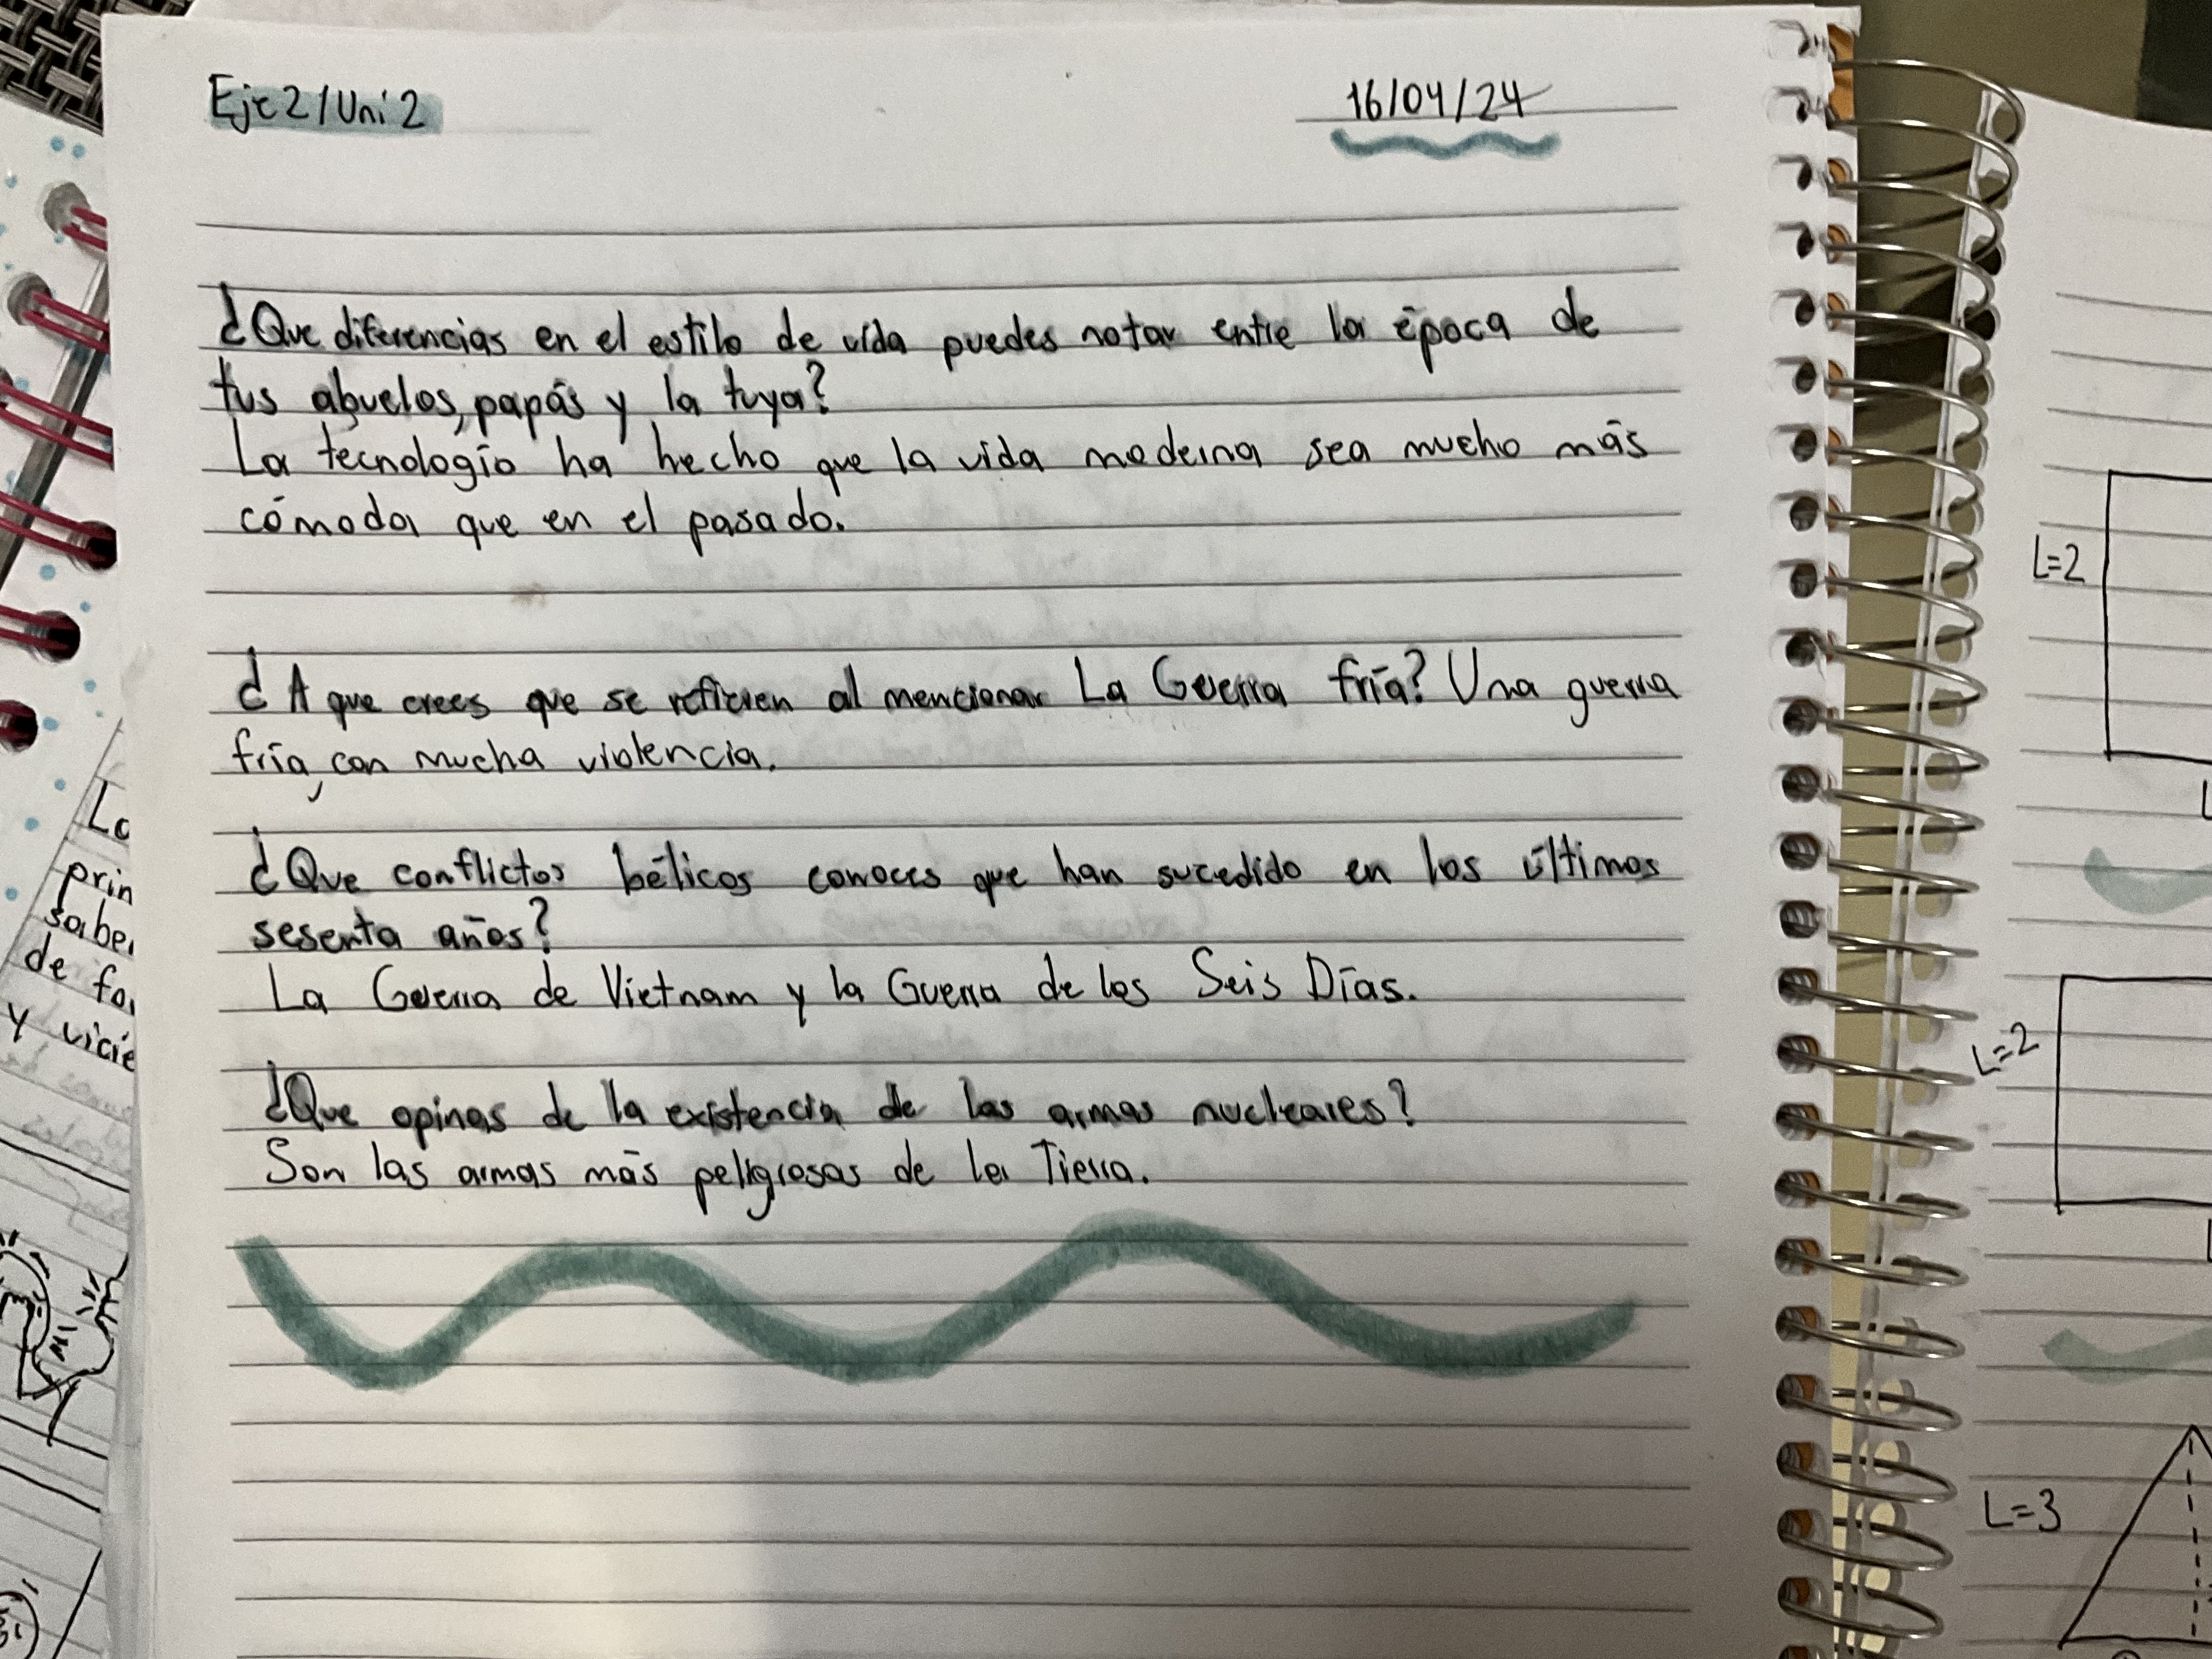 Eje 2/Uni 2
16/04/24
¿Que diferencias en el estilo de vida puedes notar entre la época de
tus abuelos, papás y la tuya?
La tecnología ha hecho que la vida moderna sea mucho más
cómoda que en el pasado.
¿A que crees que se refieren al mencionar La Guerra fría? Una guerra
fría, con mucha violencia.
¿Que conflictos bélicos conoces que han sucedido en los últimos
sesenta años?
La Guerra de Vietnam y la Guerra de los Seis Días.
¿Que opinas de la existencia de las armas nucleares?
Son las armas más peligrosas de la Tierra.
La
prin
saber
de fo
y vicie
L=2
L=2
L=3